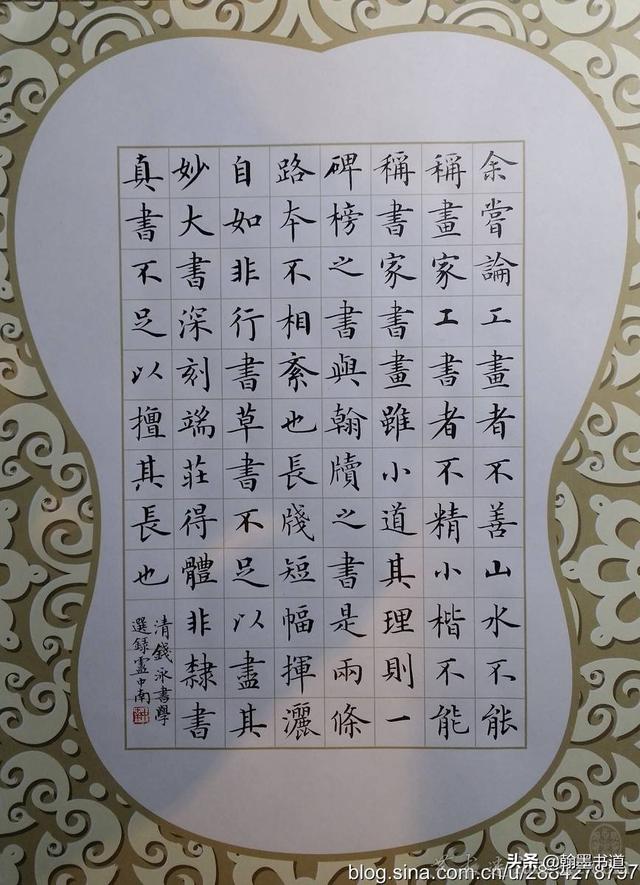 余嘗論工畫者不善山水不能
稱畫家工書者不精小楷不能
稱書家書畫雖小道其理則一
碑榜之書與翰牘之書是兩條
路本不相紊也長牋短幅揮灑
自如非行書草書不足以盡其
妙大書深刻端莊得體非隸書
真書不足以擅其長也
清錢泳書學
選録盧中南
头条@翰墨书道
blog.sina.com.cn/u/2884278797